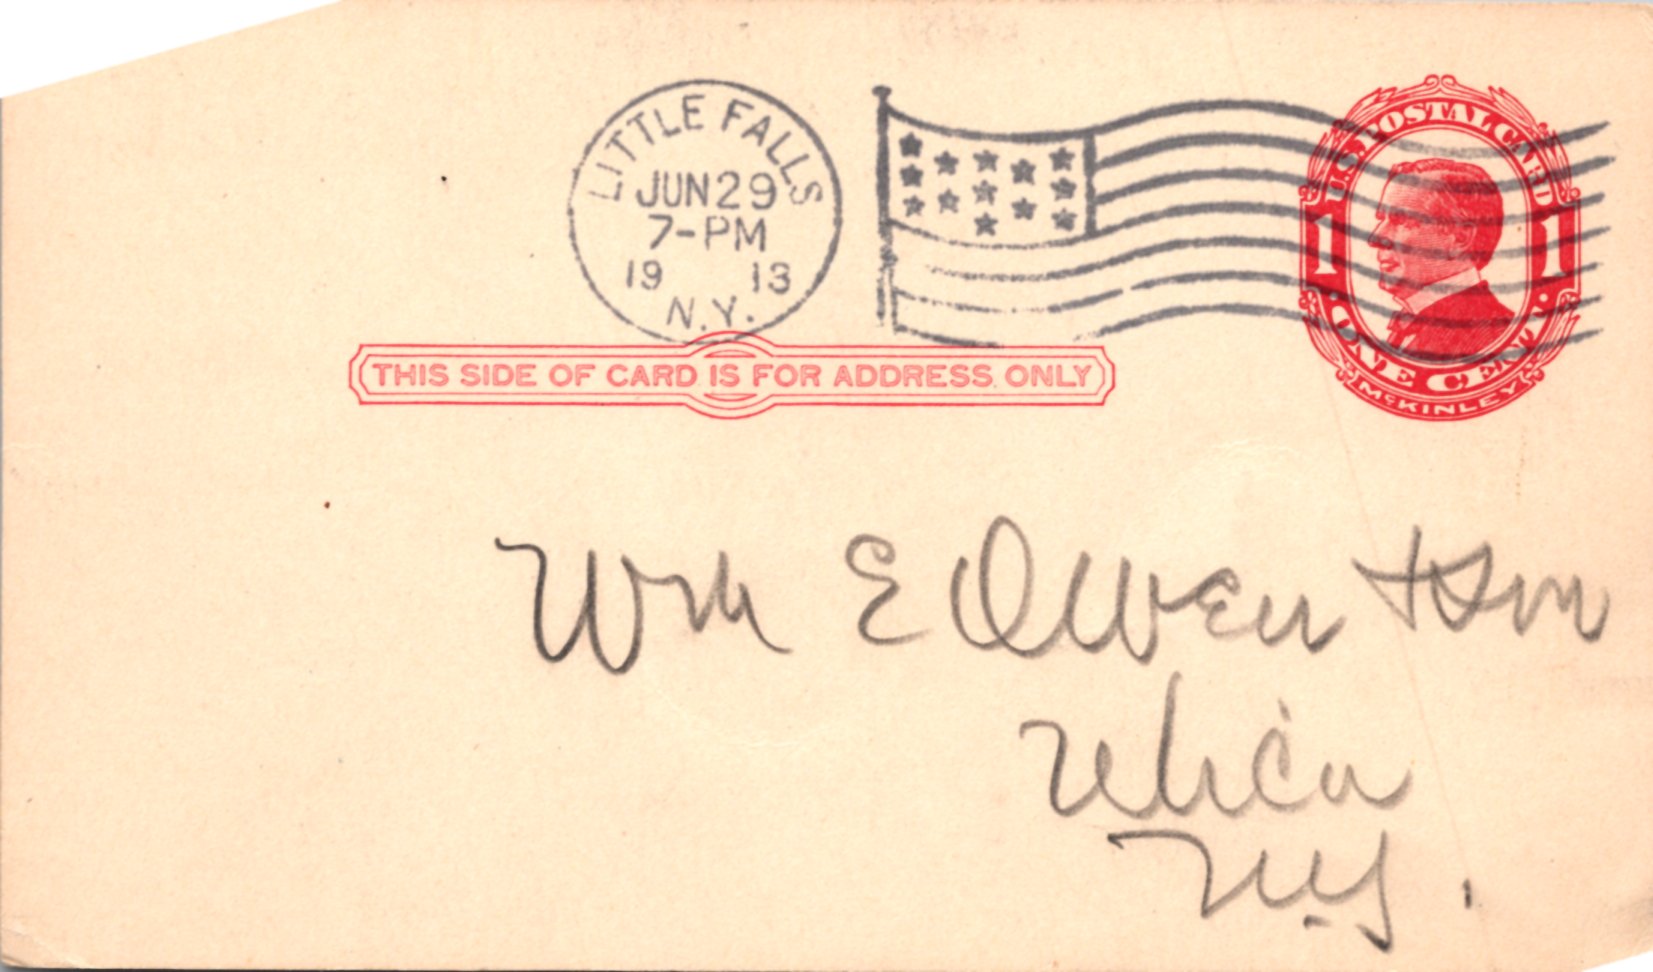 LITTLE FALLS
JUN 29
7-PM
19 13
N.Y.
U.S. POSTAL CARD
1 1
ONE CENT
McKINLEY
THIS SIDE OF CARD IS FOR ADDRESS ONLY
Wm E Owen + Son
Utica
N.Y.